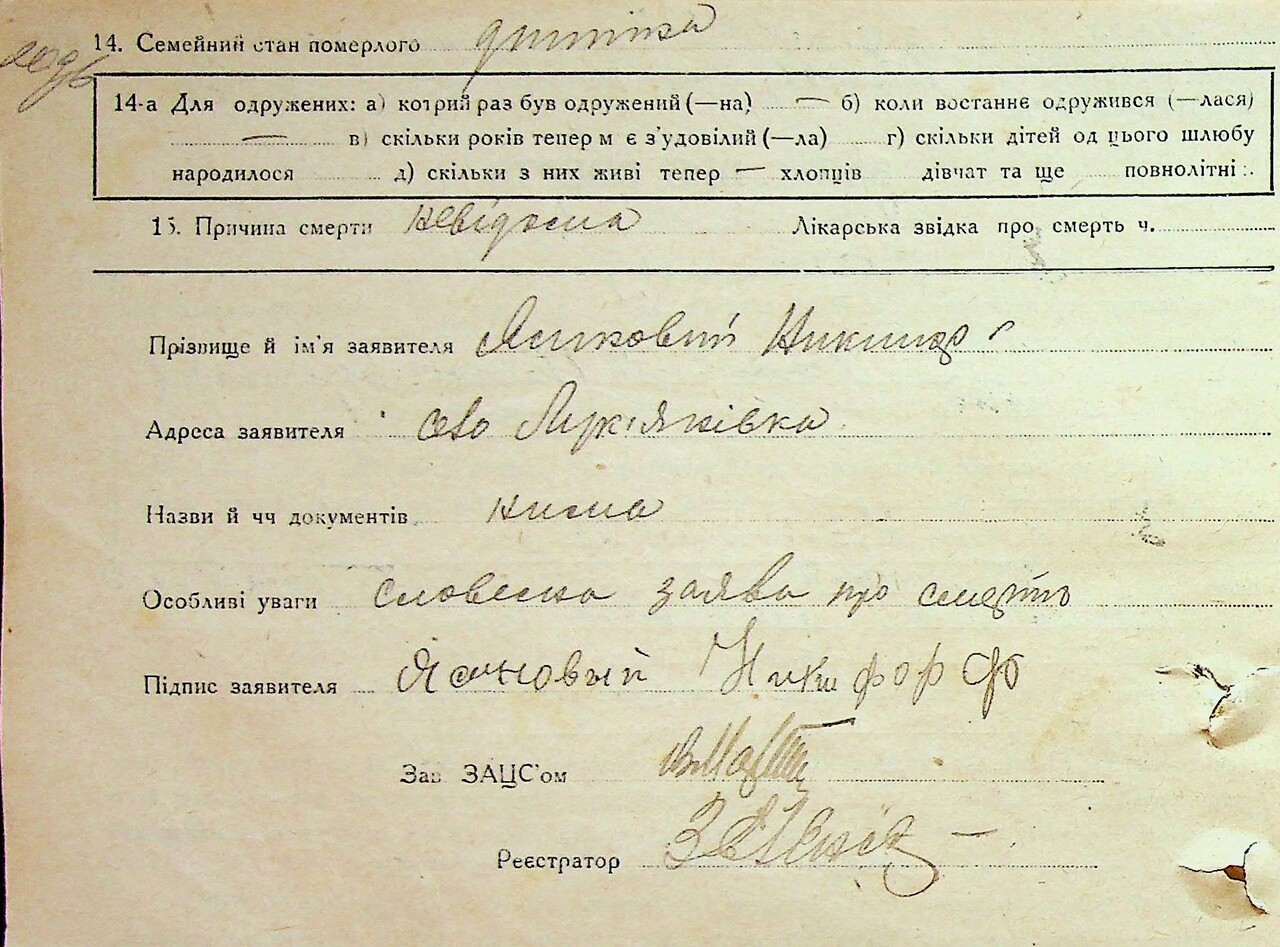 14. Семейний стан померлого дитина
14-а Для одружених: а) котрий раз був одружений (—на) — б) коли востаннє одружився (—лася)
— в) скільки років тепер м є з'удовілий (—ла) г) скільки дітей од цього шлюбу
народилося д) скільки з них живі тепер — хлопців дівчат та ще повнолітні
15. Причина смерти невідома Лікарська звідка про смерть ч.
Прізвище й ім'я заявителя Никифор
Адреса заявителя село Лук'янівка
Назви й чч документів нима
Особливі уваги словесна заява про смерть
Підпис заявителя Никифор Ф
Зав ЗАЦС'ом
Реєстратор